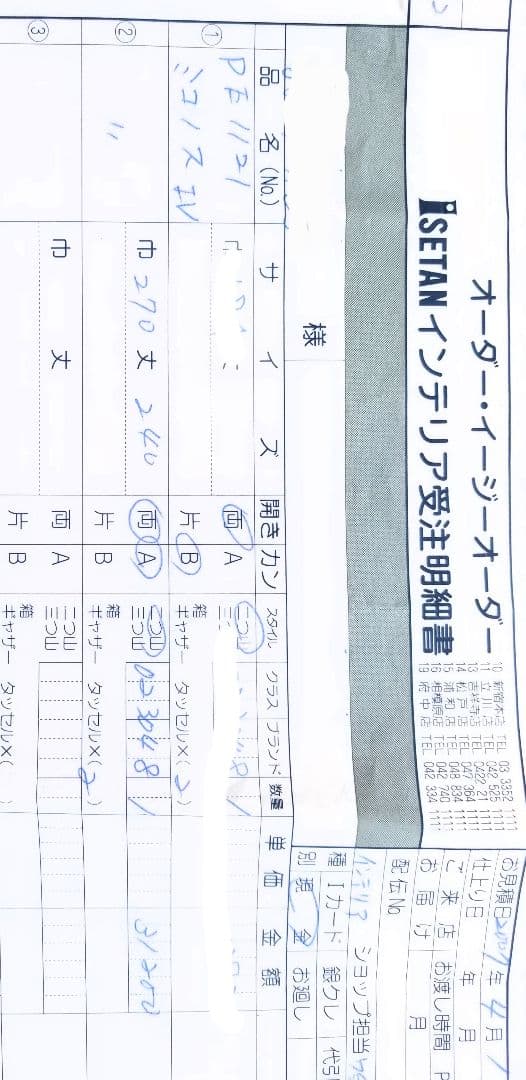 オーダー・イージーオーダー
ISETAN インテリア受注明細書
10 新宿本店 TEL 03 3352 1111
11 立川店 TEL 042 525 1111
13 吉祥寺店 TEL 0422 21 1111
14 松戸店 TEL 047 364 1111
15 浦和店 TEL 048 834 1111
16 相模原店 TEL 042 740 1111
19 府中店 TEL 042 334 1111
お見積日 年 4月 1
仕上り日 年 月
ご来店 お渡し時間 P
お届け 月
配伝No
インテリア ショップ担当
様
種別 Iカード 銀クレ 代引
現金 お廻し
品名(No.) サイズ 開き カン スタイル クラス ブランド 数量 単価 金額
① PE1121 両 A 二つ山 8 1
シコノス IV 片 B 箱 ギャザー タッセル×(2
② 〃 巾 270 丈 240 両 A 二つ山 三つ山 023048 1 31200
片 B 箱 ギャザー タッセル×(2)
③ 巾 丈 両 A 二つ山 三つ山
片 B 箱 ギャザー タッセル×( )